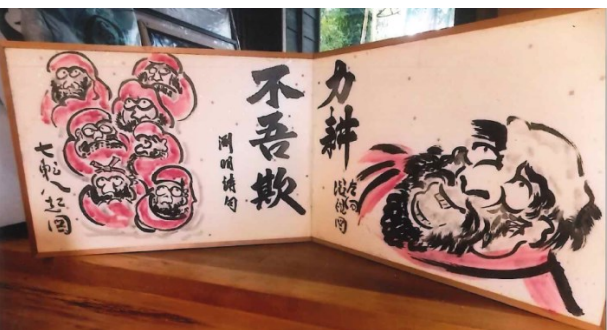 力耕
不吾欺
淵明詩句
七転八起図